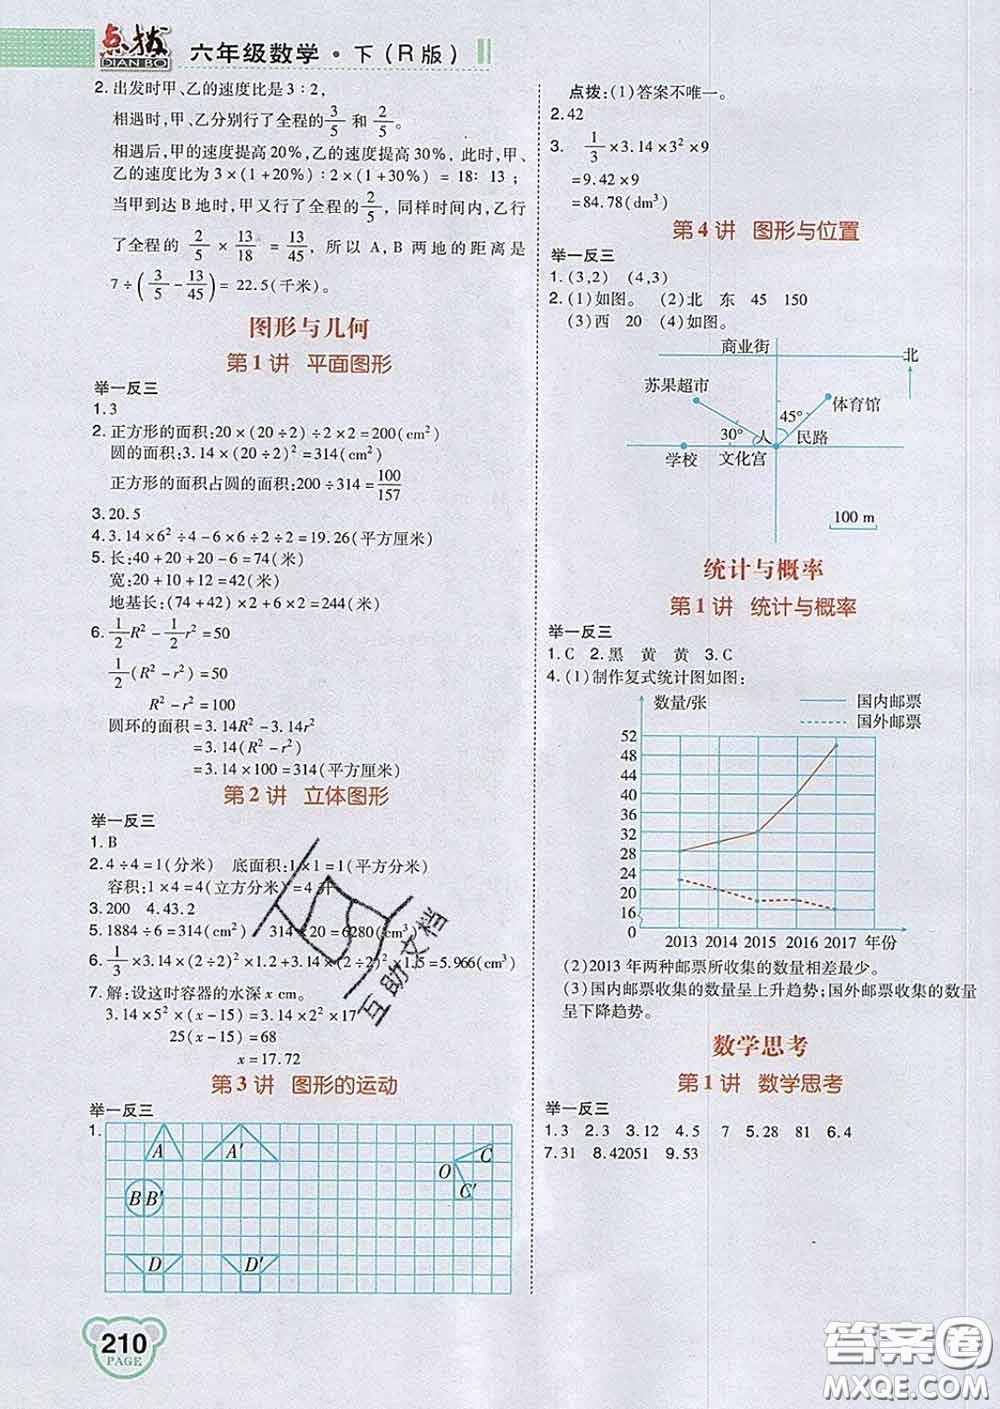 点拨
DIAN BO
六年级数学·下(R版)
2.出发时甲、乙的速度比是3∶2,
相遇时,甲、乙分别行了全程的3/5 和 2/5。
相遇后,甲的速度提高20%,乙的速度提高30%, 此时,甲、
乙的速度比为3×(1+20%)∶2×(1+30%)= 18∶13 ;
当甲到达B地时,甲又行了全程的2/5, 同样时间内,乙行
了全程的 2/5 × 13/18 = 13/45, 所以 A,B 两地的距离是
7÷(3/5-13/45)= 22.5(千米)。
图形与几何
第1讲 平面图形
举一反三
1.3
2.正方形的面积:20×(20÷2)÷2×2=200(cm²)
圆的面积:3.14×(20÷2)²=314(cm²)
正方形的面积占圆的面积:200÷314=100/157
3.20.5
4.3.14×6²÷4-6×6÷2÷2=19.26(平方厘米)
5.长:40+20+20-6=74(米)
宽:20+10+12=42(米)
地基长:(74+42)×2+6×2=244(米)
6.1/2R²-1/2r²=50
1/2(R²-r²)=50
R²-r²=100
圆环的面积=3.14R²-3.14r²
=3.14(R²-r²)
=3.14×100=314(平方厘米)
第2讲 立体图形
举一反三
1.B
2.4÷4=1(分米) 底面积:1×1=1(平方分米)
容积:1×4=4(立方分米)=4升
3.200 4.43.2
5.1884÷6=314(cm²) 314×20=6280(cm³)
6.1/3×3.14×(2÷2)²×1.2+3.14×(2÷2)²×1.5=5.966(cm³)
7.解:设这时容器的水深x cm。
3.14×5²×(x-15)=3.14×2²×17
25(x-15)=68
x=17.72
第3讲 图形的运动
举一反三
1.
A A′ C
O
B B′ C′
D D′
210
PAGE
点拨:(1)答案不唯一。
2.42
3. 1/3×3.14×3²×9
=9.42×9
=84.78(dm³)
第4讲 图形与位置
举一反三
1.(3,2) (4,3)
2.(1)如图。 (2)北 东 45 150
(3)西 20 (4)如图。
商业街
北
苏果超市
体育馆
45°
30° 人 民路
学校 文化宫
100 m
统计与概率
第1讲 统计与概率
举一反三
1.C 2.黑 黄 黄 3.C
4.(1)制作复式统计图如图:
数量/张
国内邮票
国外邮票
52
48
44
40
36
32
28
24
20
16
0
2013 2014 2015 2016 2017 年份
(2)2013年两种邮票所收集的数量相差最少。
(3)国内邮票收集的数量呈上升趋势;国外邮票收集的数量
呈下降趋势。
数学思考
第1讲 数学思考
举一反三
1.3 2.3 3.12 4.5 7 5.28 81 6.4
7.31 8.42051 9.53
互助文档
答案圈
MXQE.COM